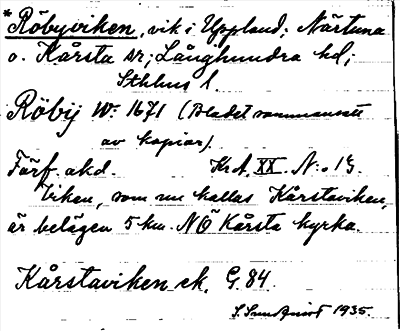 * Röbyviken, vik i Uppland; Närtuna
o. Kårsta sn; Långhundra hd;
Sthlms l.
Röbij W: 1671 (Bladet sammansatt
av kopior).
Förf. okd. KrA, XX. N:o 13.
Viken, som nu kallas Kårstaviken,
är belägen 5 km. NÖ Kårsta kyrka.
Kårstaviken ek. G. 84.
1935.